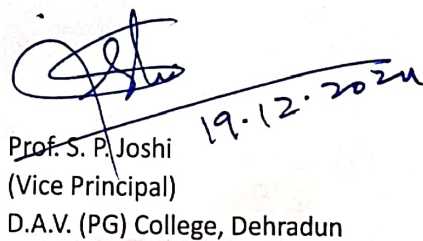 19.12.2024
Prof. S. P. Joshi
(Vice Principal)
D.A.V. (PG) College, Dehradun